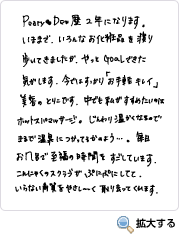 Peary Deo歴2年になります。
いままで、いろんなお化粧品を渡り
歩いてきましたが、やっとGoalできた
気がします。今ではすっかり「お手軽キレイ」
美容のとりこです。中でも私がすすめたいのは
ホットスパマッサージ。じんわり温かくなるので
まるで温泉につかってるかのよう…。毎日
お風呂で至福の時間をすごしています。
こんにゃくスクラブがぷにぷにしてて、
いらない角質をやさし〜く取り去ってくれます。
拡大する